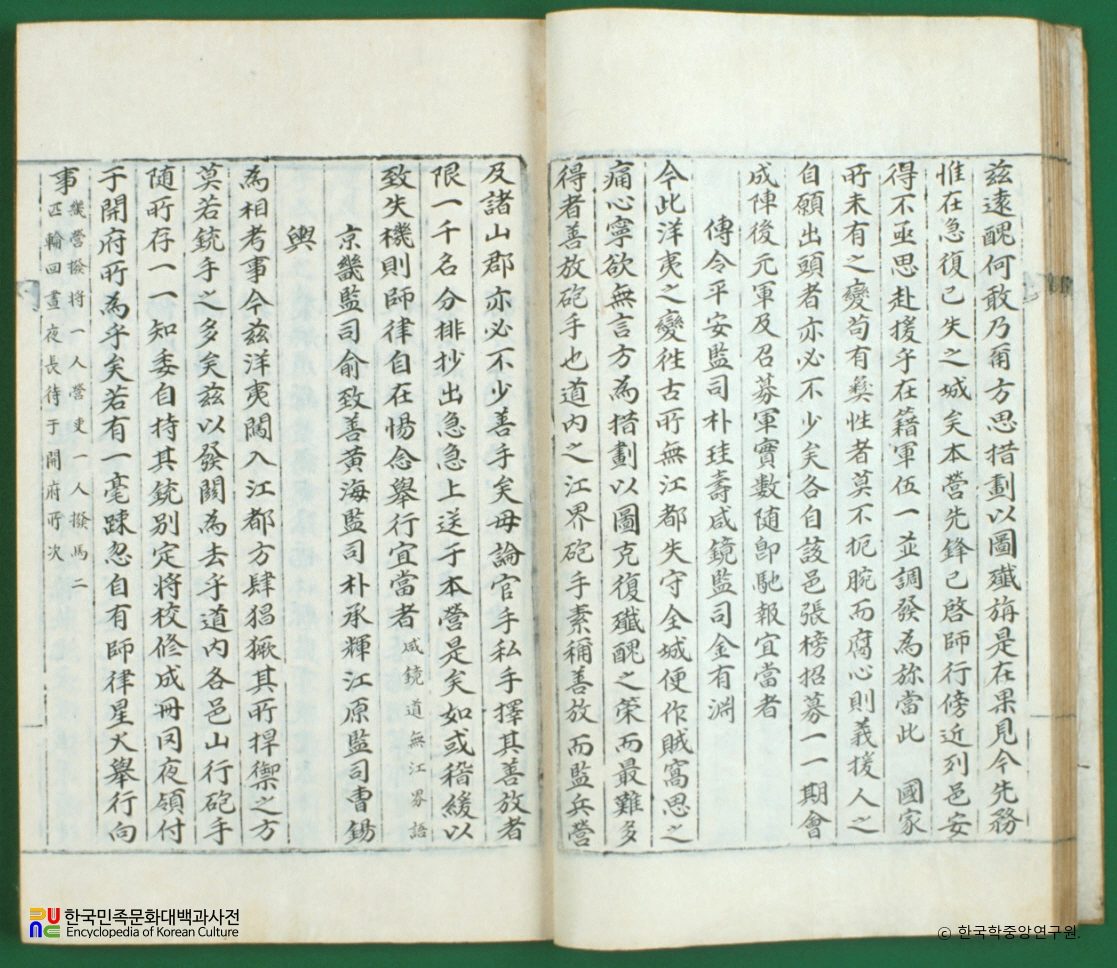 玆遠醜何敢乃爾方思措劃以圖殲旃是在果見今先務
惟在急復已失之城矣本營先鋒已啓師行傍近列邑安
得不亟思赴援乎在藉軍伍一並調發為旀當此 國家
所未有之變苟有彜性者莫不扼腕而腐心則義援人之
自願出頭者亦必不少矣各自該邑張榜招募一一期會
成陣後元軍及召募軍實數随卽馳報宜當者
傳令平安監司朴珪壽咸鏡監司金有淵
今此洋夷之變徃古所無江都失守全城便作賊窩思之
痛心寧欲無言方為措劃以圖克復殲醜之策而最難多
得者善放砲手也道内之江界砲手素稱善放而監兵營
及諸山郡亦必不少善手矣毋論官手私手擇其善放者
限一千名分排抄出急急上送于本營是矣如或稽緩以
致失機則師律自在惕念舉行宜當者 咸鏡道無江界語
京畿監司俞致善黃海監司朴承輝江原監司曺錫
輿
為相考事今玆洋夷闖入江都方肆猖獗其所捍禦之方
莫若銃手之多矣玆以發關為去乎道内各邑山行砲手
随所存一一知委自持其銃别定將校修成冊罔夜領付
于開府所為乎矣若有一毫踈忽自有師律星火舉行向
事 畿營撥將一人營吏一人撥馬二
匹輪回晝夜長待于開府所次
한국민족문화대백과사전
Encyclopedia of Korean Culture
© 한국학중앙연구원.